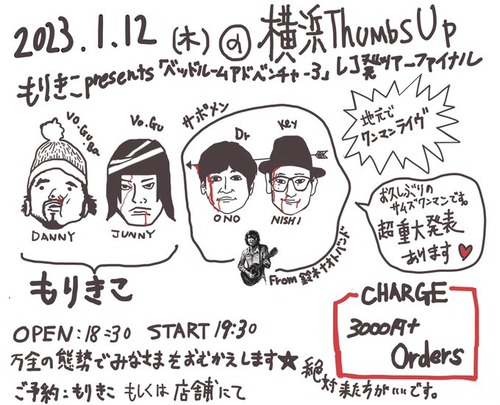 2023.1.12(木)@横浜ThumbsUp
もりきこpresents「ベッドルームアドベンチャー3」レコ発ツアーファイナル
地元で
ワンマンライヴ
サポメン
Vo.Gu.Ba
Vo.Gu
Dr
Key
DANNY
JUNNY
ONO
NISHI
From 鈴木ナオトバンド
もりきこ
お久しぶりの
サムズワンマンです。
超重大発表
あります♥
CHARGE
3000円+
Orders
OPEN:18:30 START 19:30
万全の態勢でみなさまをおむかえします★
絶対来た方がいいです。
ご予約:もりきこ もしくは店舗にて